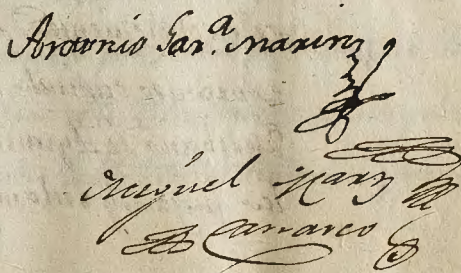 Antonio Gar.ª Marin
Miguel Marn
Camarco